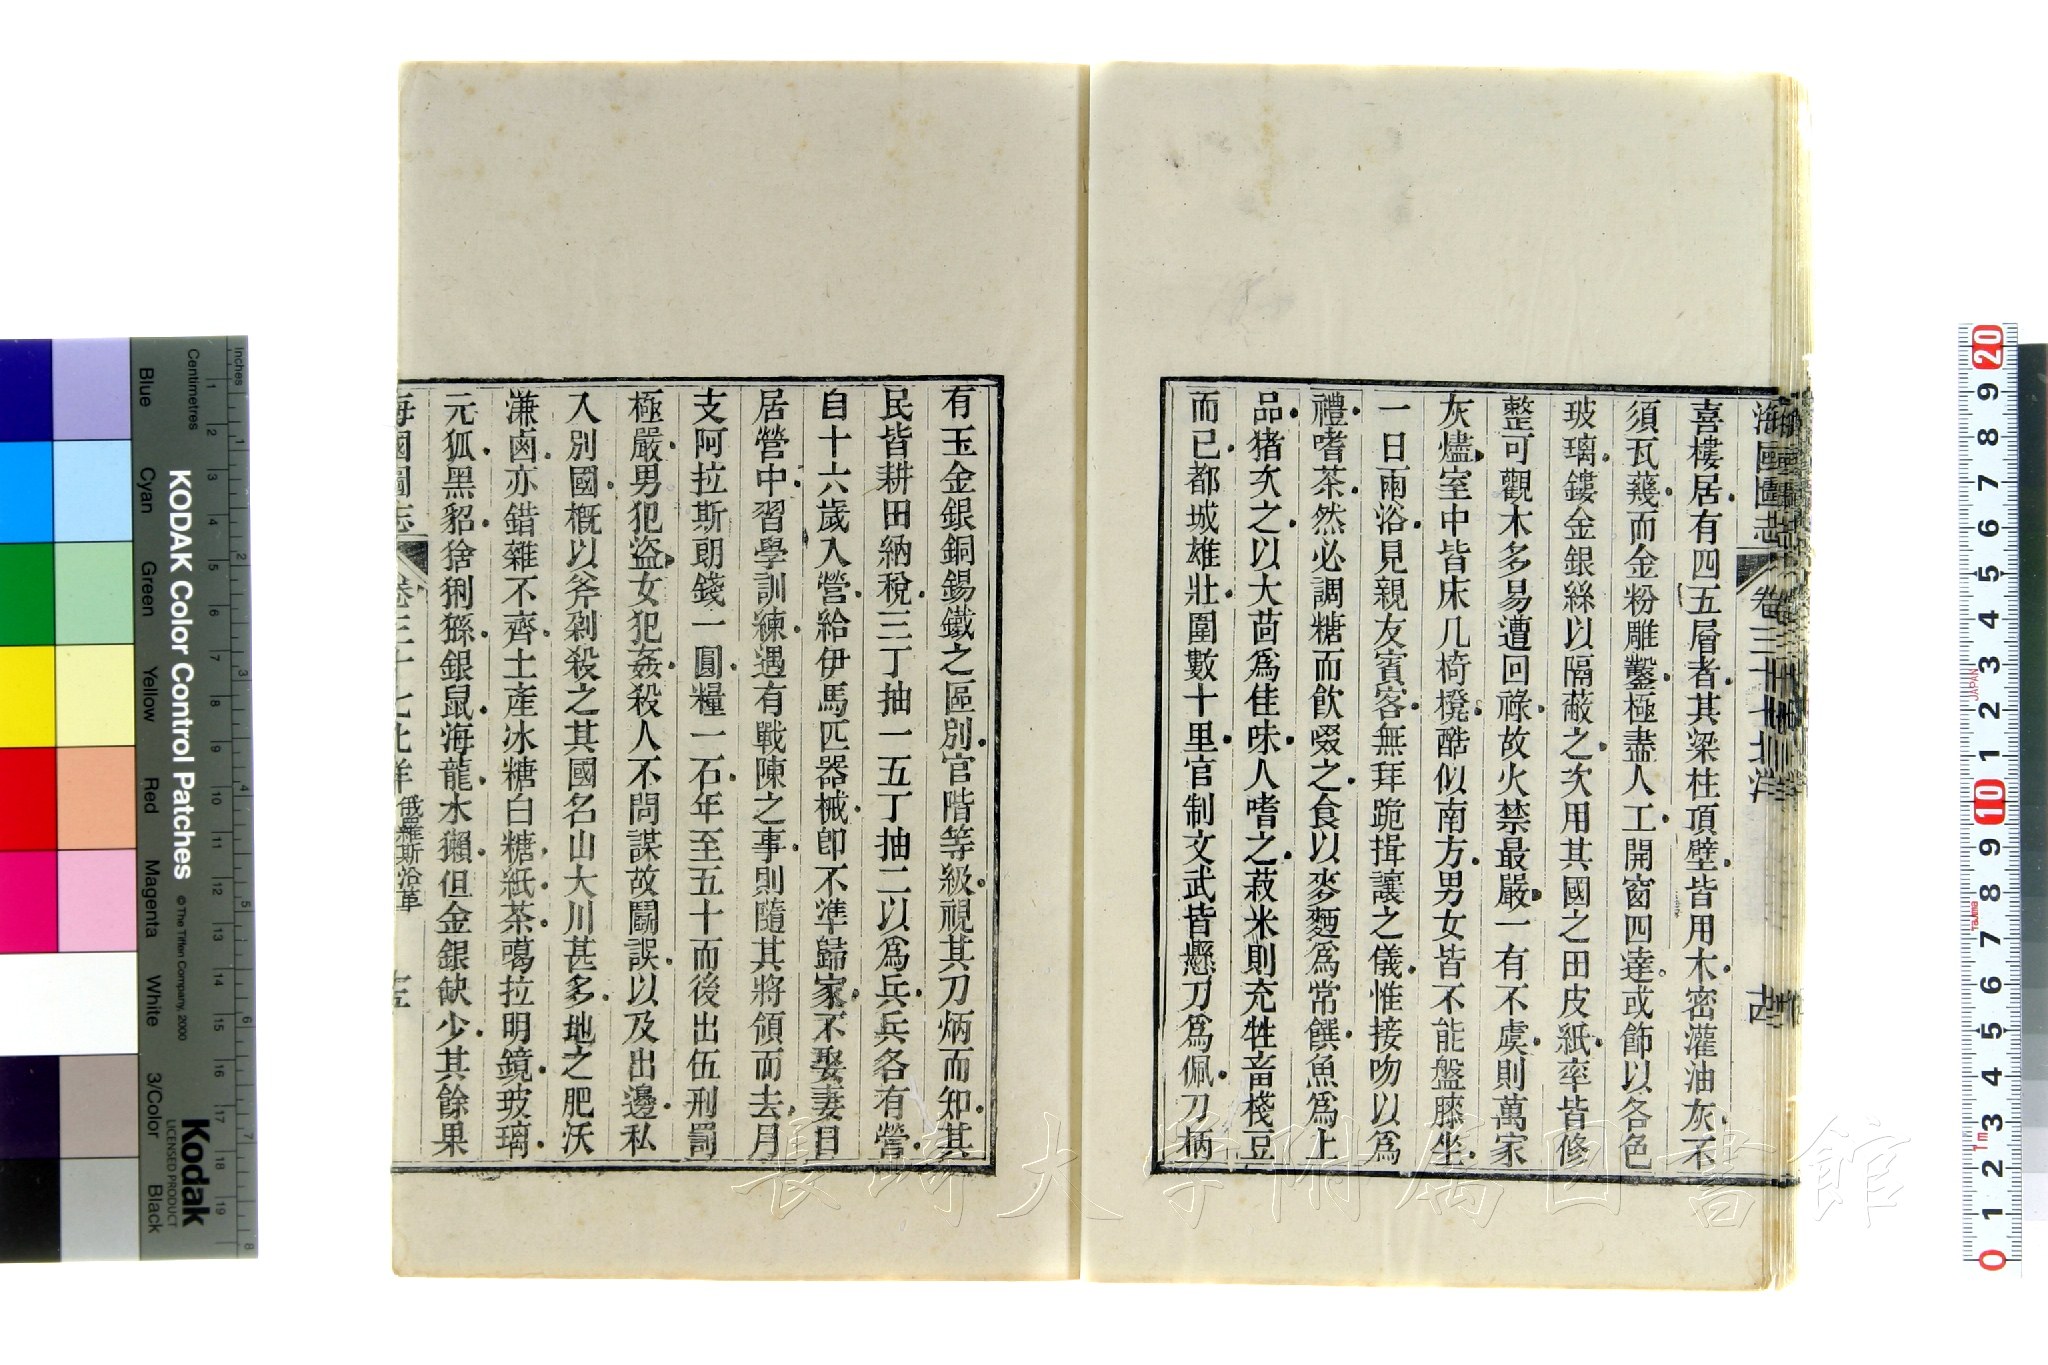 海國圖志 卷三十七 北洋 古
喜樓居有四五層者其梁柱頂壁皆用木密灌油灰不
須瓦薐而金粉雕鑿極盡人工開窗四達或飾以各色
玻璃鏤金銀絲以隔蔽之次用其國之田皮紙率皆修
整可觀木多易遭回祿故火禁最嚴一有不虞則萬家
灰燼室中皆床几椅櫈酷似南方男女皆不能盤膝坐
一日兩浴見親友賓客無拜跪揖讓之儀惟接吻以爲
禮嗜茶然必調糖而飮啜之食以麥麵爲常饌魚爲上
品猪次之以大茴爲佳味人嗜之菽米則充牲畜棧豆
而已都城雄壯圍數十里官制文武皆懸刀爲佩刀柄
有玉金銀銅錫鐵之區別官階等級視其刀炳而知其
民皆耕田納稅三丁抽一五丁抽二以爲兵兵各有營
自十六歲入營給伊馬匹器械卽不准歸家不娶妻日
居營中習學訓練遇有戰陳之事則隨其將領而去月
支阿拉斯朗錢一圓糧一石年至五十而後出伍刑罰
極嚴男犯盜女犯姦殺人不問謀故鬬誤以及出邊私
入別國槪以斧剁殺之其國名山大川甚多地之肥沃
溓鹵亦錯雜不齊土產冰糖白糖紙茶噶拉明鏡玻璃
元狐黑貂猞猁猻銀鼠海龍水獺但金銀缺少其餘果
海國圖志 卷三十七 北洋 俄羅斯沿革
長崎大学附属図書館
KODAK Color Control Patches © The Tiffen Company, 2000
Kodak
LICENSED PRODUCT
Inches
Centimetres
Blue
Cyan
Green
Yellow
Red
Magenta
White
3/Color
Black
1 2 3 4 5 6 7 8
1 2 3 4 5 6 7 8 9 10 11 12 13 14 15 16 17 18 19
0 1 2 3 4 5 6 7 8 9 10 1 2 3 4 5 6 7 8 9 20
JAPAN